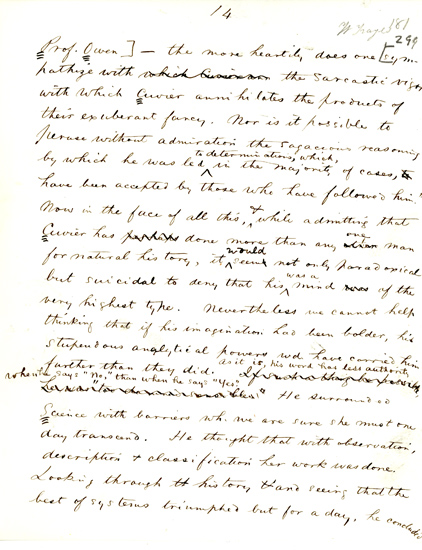 14
181
299
Prof. Owen] — the more heartily does one [sym-
pathize with which Cuvier the sarcastic vigor
with which Cuvier annihilates the products of
their exuberant fancy. Nor is it possible to
peruse without admiration the sagacious reasoning
to determinations, which,
by which he was led in the majority of cases,
have been accepted by those who have followed him."
Now in the face of all this, & while admitting that
one
Cuvier has perhaps done more than any other man
would
for natural history, it seems not only paradoxical
was a
but suicidal to deny that his mind was of the
very highest type. Nevertheless we cannot help
thinking that if his imagination had been bolder, his
stupendous analytical powers wd have carried him
as it is, his word has less authority
further than they did.
when he says "No," than when he says "Yes"
He surrounded
Science with barriers wh. we are sure she must one
day transcend. He thought that with observation,
description & classification her work was done.
Looking through th history & and seeing that the
best of systems triumphed but for a day, he concluded